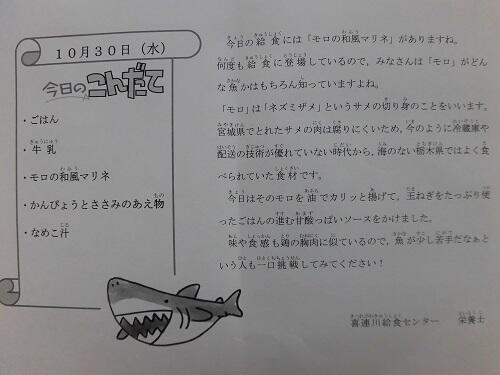 10月30日（水）
今日のこんだて
・ごはん
・牛乳
・モロの和風マリネ
・かんぴょうとささみのあえ物
・なめこ汁
今日の給食には「モロの和風マリネ」がありますね。
何度も給食に登場しているので、みなさんは「モロ」がどん
な魚かはもちろん知っていますよね。
「モロ」は「ネズミザメ」というサメの切り身のことをいいます。
宮城県でとれたサメの肉は腐りにくいため、今のように冷蔵庫や
配送の技術が優れていない時代から、海のない栃木県ではよく食
べられていた食材です。
今日はそのモロを油でカリッと揚げて、玉ねぎをたっぷり使
ったごはんの進む甘酸っぱいソースをかけました。
味や食感も鶏の胸肉に似ているので、魚が少し苦手だなぁと
いう人も一口挑戦してみてください！
喜連川給食センター　栄養士